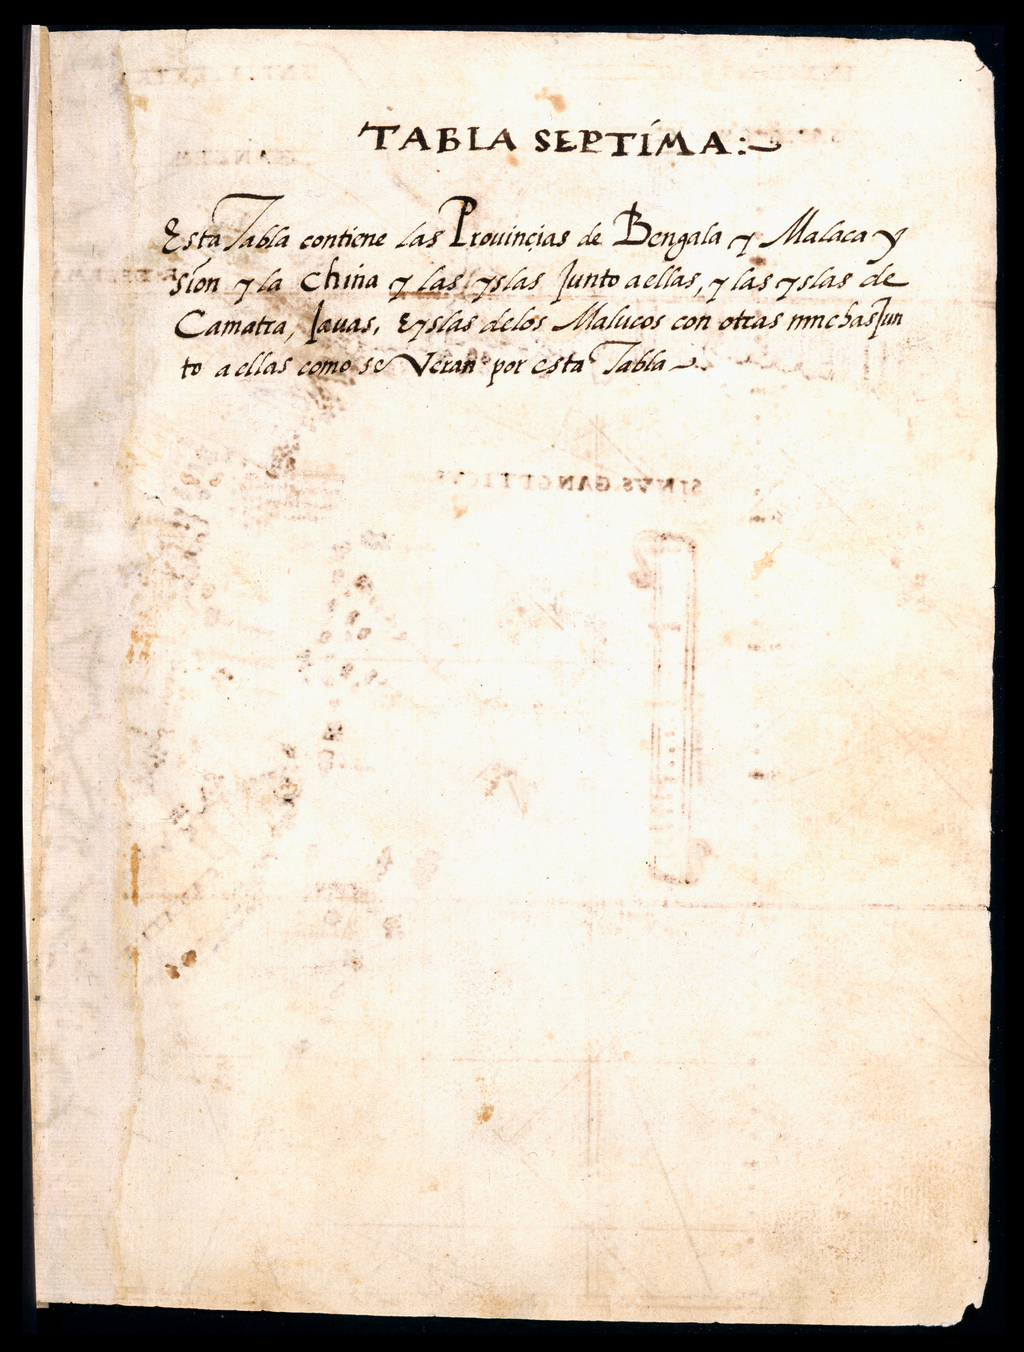 TABLA SEPTIMA:
Esta Tabla contiene las Prouinçias de Bengala y Malaca y
sion y la china y las yslas Junto a ellas, y las yslas de
Camatra, Jauas, E yslas de los Malucos con otras muchas Jun
to a ellas como se Veran por esta Tabla
SINVS GANGETICVS